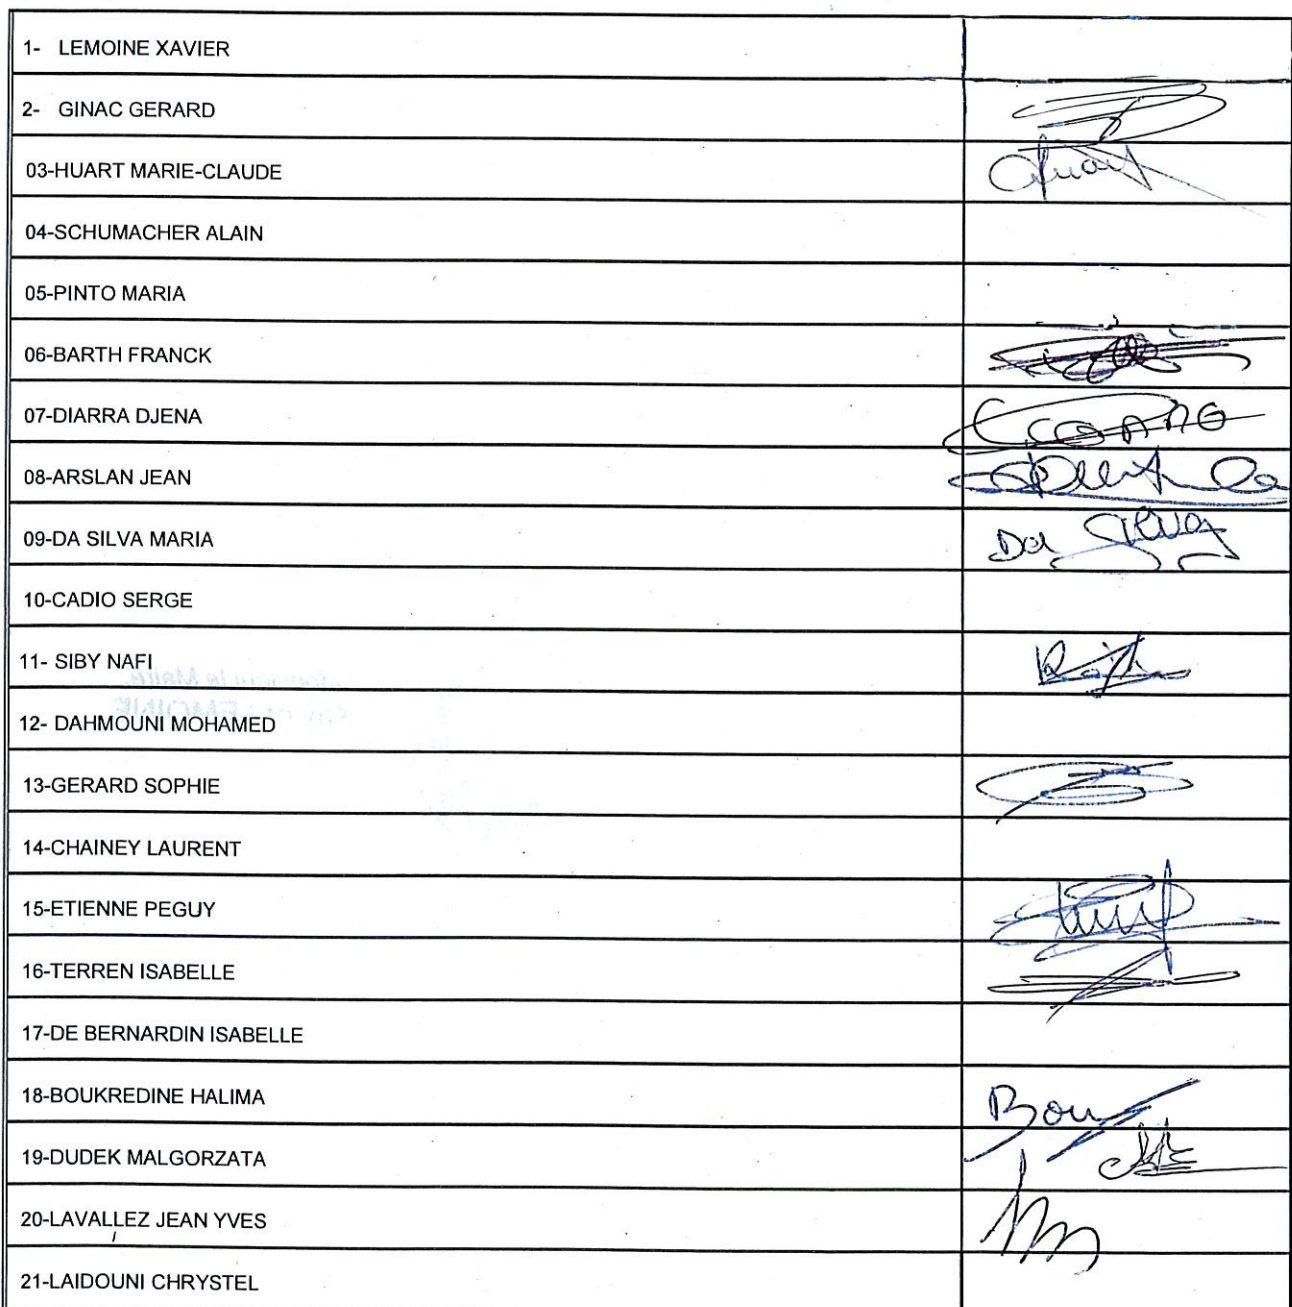 1- LEMOINE XAVIER
2- GINAC GERARD
03-HUART MARIE-CLAUDE Huart
04-SCHUMACHER ALAIN
05-PINTO MARIA
06-BARTH FRANCK
07-DIARRA DJENA
08-ARSLAN JEAN
09-DA SILVA MARIA Da Silva
10-CADIO SERGE
11- SIBY NAFI
12- DAHMOUNI MOHAMED
13-GERARD SOPHIE
14-CHAINEY LAURENT
15-ETIENNE PEGUY
16-TERREN ISABELLE
17-DE BERNARDIN ISABELLE
18-BOUKREDINE HALIMA Bou
19-DUDEK MALGORZATA
20-LAVALLEZ JEAN YVES
21-LAIDOUNI CHRYSTEL